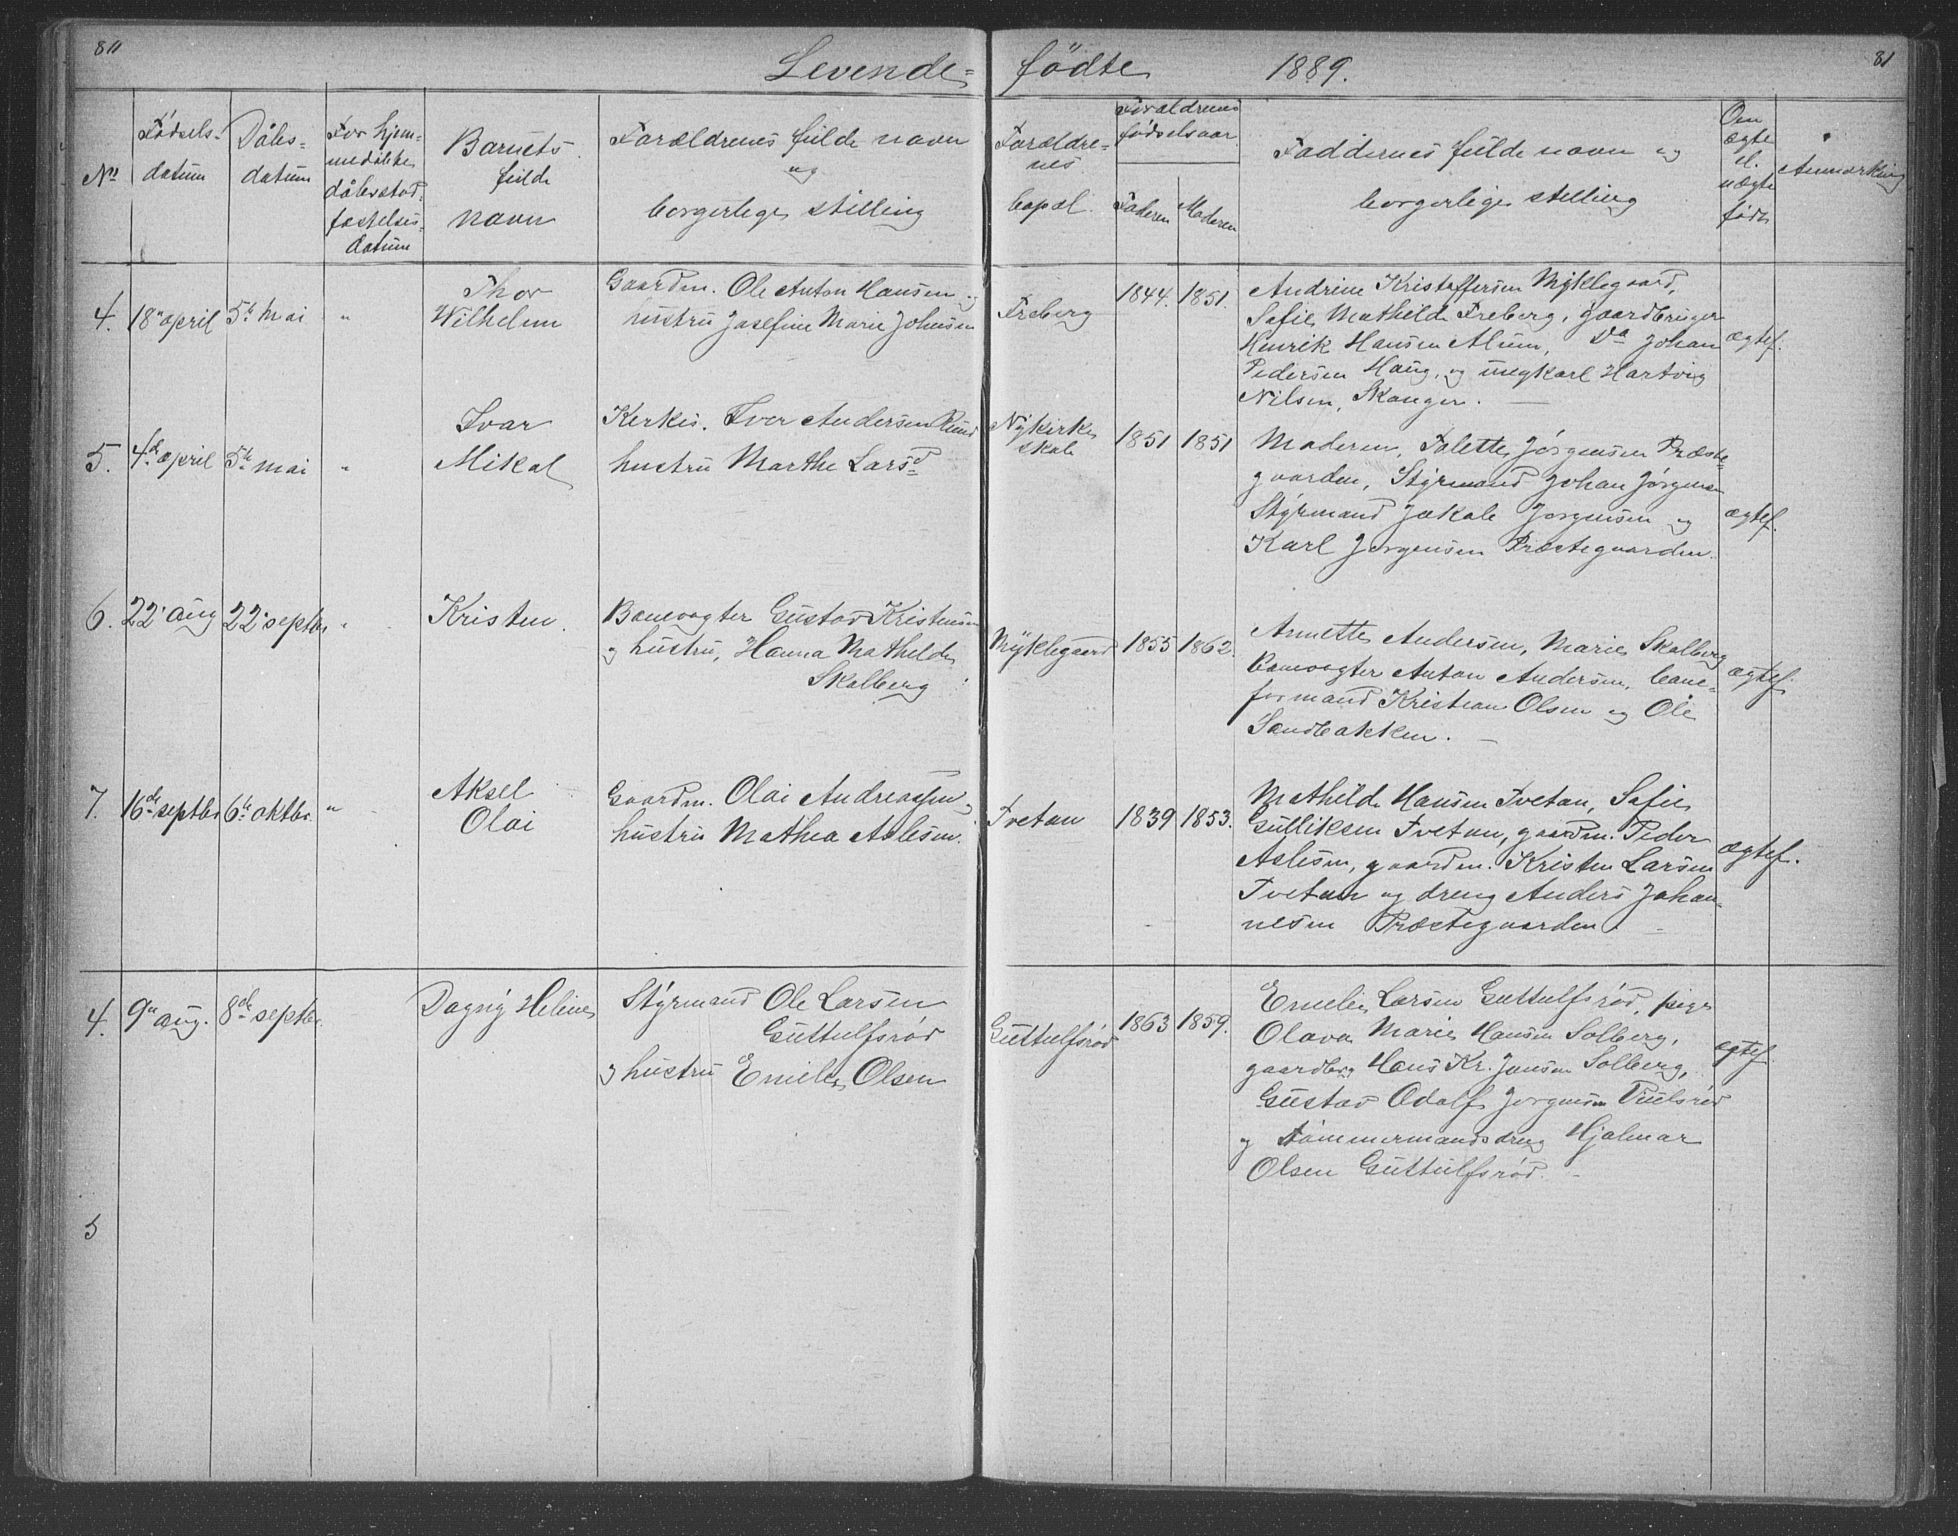 80
Levende=
födte
1889.
81
No
Födsels-
datum
Dåbs=
datum
For hjem-
medöbte
dåbsstad-
fæstelses-
datum
Barnets
fulde
navn
Forældrenes fulde navn
og
borgerlige stilling
Forældre-
nes
bopæl.
Forældrenes
födselsaar
Faderen
Moderen
Faddernes fulde navn og
borgerlige stilling
Om
ægte
el.
uægte
födt
Anmærkning
4.
18de april
5te mai
"
Thor
Wilhelm
Gaardm. Ole Anton Hansen og
hustru Josefine Marie Johnsen
Freberg
1844.
1851.
Andrine Kristoffersen Myklegaard,
Sofie Mathilde Freberg, gaardbruger
Henrik Hansen Alum, Do Johan
Pedersen Haug, og ungkarl Hartvig
Nilsen, Skanger.
ægtef.
5.
4de april
5te mai
"
Ivar
Mikal
Kirkes. Iver Andersen Rund
hustru Marthe Larsd
Nykirke
skole
1851
1851
Moderen, Tolette Jörgensen Præste-
gaarden, Styrmand Johan Jörgensen
Styrmand Jakob Jorgensen og
Karl Jorgensen Præstegaarden.
ægtef.
6.
22 aug
22 septbr
"
Kristen.
Banevogter Gustav Kristensen
og hustru, Hanna Mathilde
Skalberg
Myklegaard
1855
1862.
Annette Andersen, Marie Skalberg
banevogter Anton Andersen, bane-
formand Kristian Olsen og Ole
Sandbakken.
ægtef.
7.
16de septbr
6te oktbr.
"
Aksel
Olai
Gaardm. Olai Andreassen og
hustru Mathea Aslesen.
Tvetan
1839
1853.
Mathilde Hansen Tvetan, Sofie
Gulliksen Tvetan, gaardm. Peder
Aslesen, gaardm. Kristen Larsen
Tvetan og dreng Anders Johan-
nesen Præstegaarden.
ægtef.
4.
9de aug.
8de septbr.
Dagny Heline
Styrmand Ole Larsen
Guttulfsröd
og hustru Emelie Olsen
Guttulfsröd
1863
1859.
Emelie Larsen Guttulfsröd, pige
Olava Marie Hansen Solberg,
gaardbrg Hans Kr. Jansen Solberg,
Gustav Adolf Jorgensen Puulsröd
og tömmermandsdreng Hjalmar
Olsen Guttulfsröd.
ægtef.
5